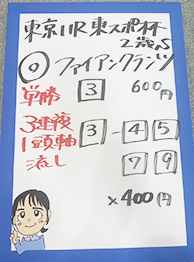 東京11R 東スポ杯
2歳S
◎ ファイアンクランツ
単勝 3 600円
3連複 3-45
1頭軸 79
流し
×400円